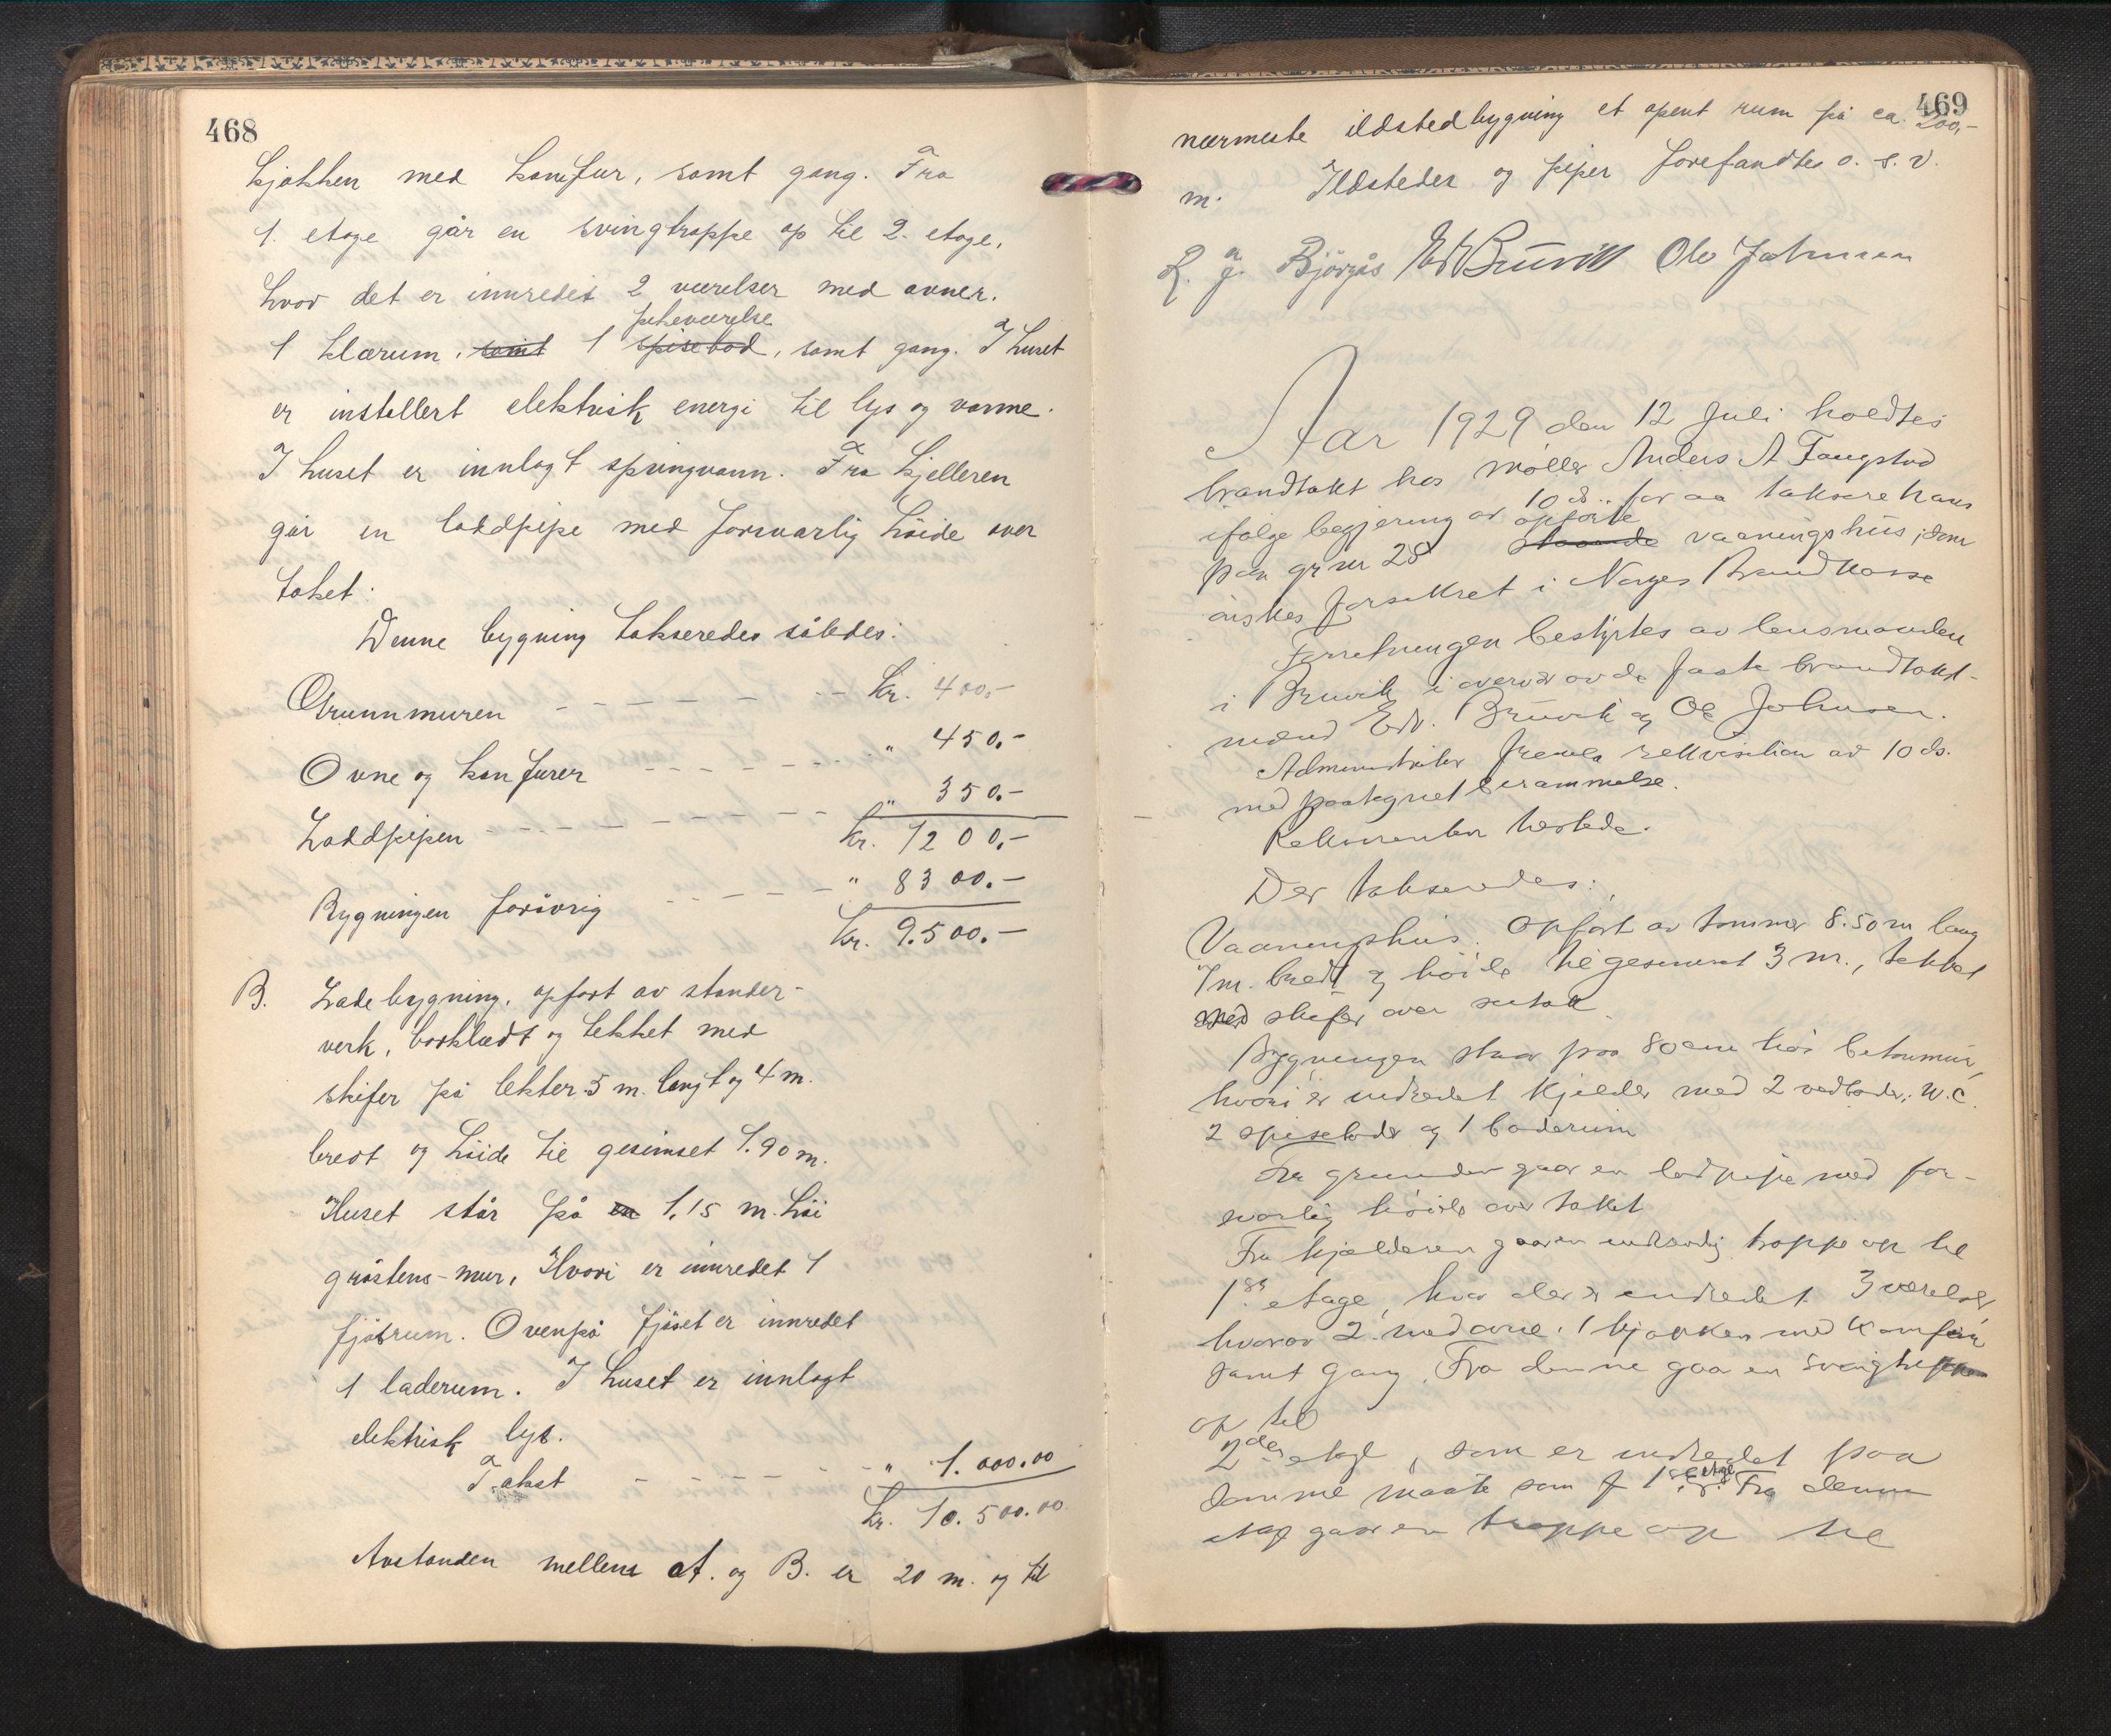 468
kjøkken med komfur, samt gang. Fra
1. etage går en svingtrappe op til 2. etage,
hvor det er innredet 2 værelser med ovner.
pikeværelse
1 klærum, samt 1 spisebod, samt gang. I huset
er installert elektrisk energi til lys og varme.
I huset er innlagt springvann. Fra kjelleren
går en loddpipe med forsvarlig høide over
taket.
Denne bygning takseredes således:
Grunnmuren - - - - - - - kr. 400,-
Ovne og komfurer - - - - - - - " 450.-
Loddpipen - - - - - - - - " 350.-
Kr. 1200.-
Bygningen forøvrig - - - - - " 8300.-
Kr. 9.500.-
B. Ladebygning, opført av stender-
verk, bordklædt og tekket med
skifer på lekter 5 m. langt og 4 m.
bredt og høide til gesimset 1.90 m.
Huset står på en 1,15 m. høi
gråstens-mur, Hvori er innredet 1
fjøsrum. Ovenpå fjøset er innredet
1 laderum. I huset er innlagt
elektrisk lys.
Takst - - - - - - - " 1.000.00
Kr. 10.500.00
Avstanden mellem A. og B. er 20 m. og til
469
nærmeste ildstedbygning et åpent rum på ca. 200,-
m. Ildsteder og piper forefandtes o. s. v.
L. J. Bjørgås Edv Bruvik Ole Johnsen
Aar 1929 den 12 Juli holdtes
brandtakt hos møller Anders A Fangstad
ifølge begjering av 10 ds. for aa taksere hans
paa gr nr 28 opførte staaende vaaningshus, som
ønskes forsikret i Norges Brandkasse
Forretningen bestyrtes av lensmanden
i Bruvik i overvær av de faste brandtakst-
mænd Edv. Bruvik og Ole Johnsen.
Administrator fremla rekvisition av 10 ds.
med paategnet berammelse.
Rekvirenten tilstede.
Der takseredes:
Vaaningshus. Opført av tømmer 8.50 m lang
7 m. bredt og høide til gesimset 3 m., tekket
med skifer over sutak.
Bygningen staar paa 80 cm høi betonmur,
hvori er indredet kjelder med 2 vedboder, W.C.
2 spiseboder og 1 baderum
Fra grunden gaar en lodpipe med for-
svarlig høide over taket
Fra kjælderen gaar en indvendig trappe op til
1ste etage, hvor der er indredet 3 værelser
hvorav 2 med ovne. 1 kjøkken med komfur
samt gang. Fra denne gaar en svingtrappe
op til
2den etage, som er indredet paa
samme maate som f 1ste etage. Fra denne
etage gaar en trappe op til